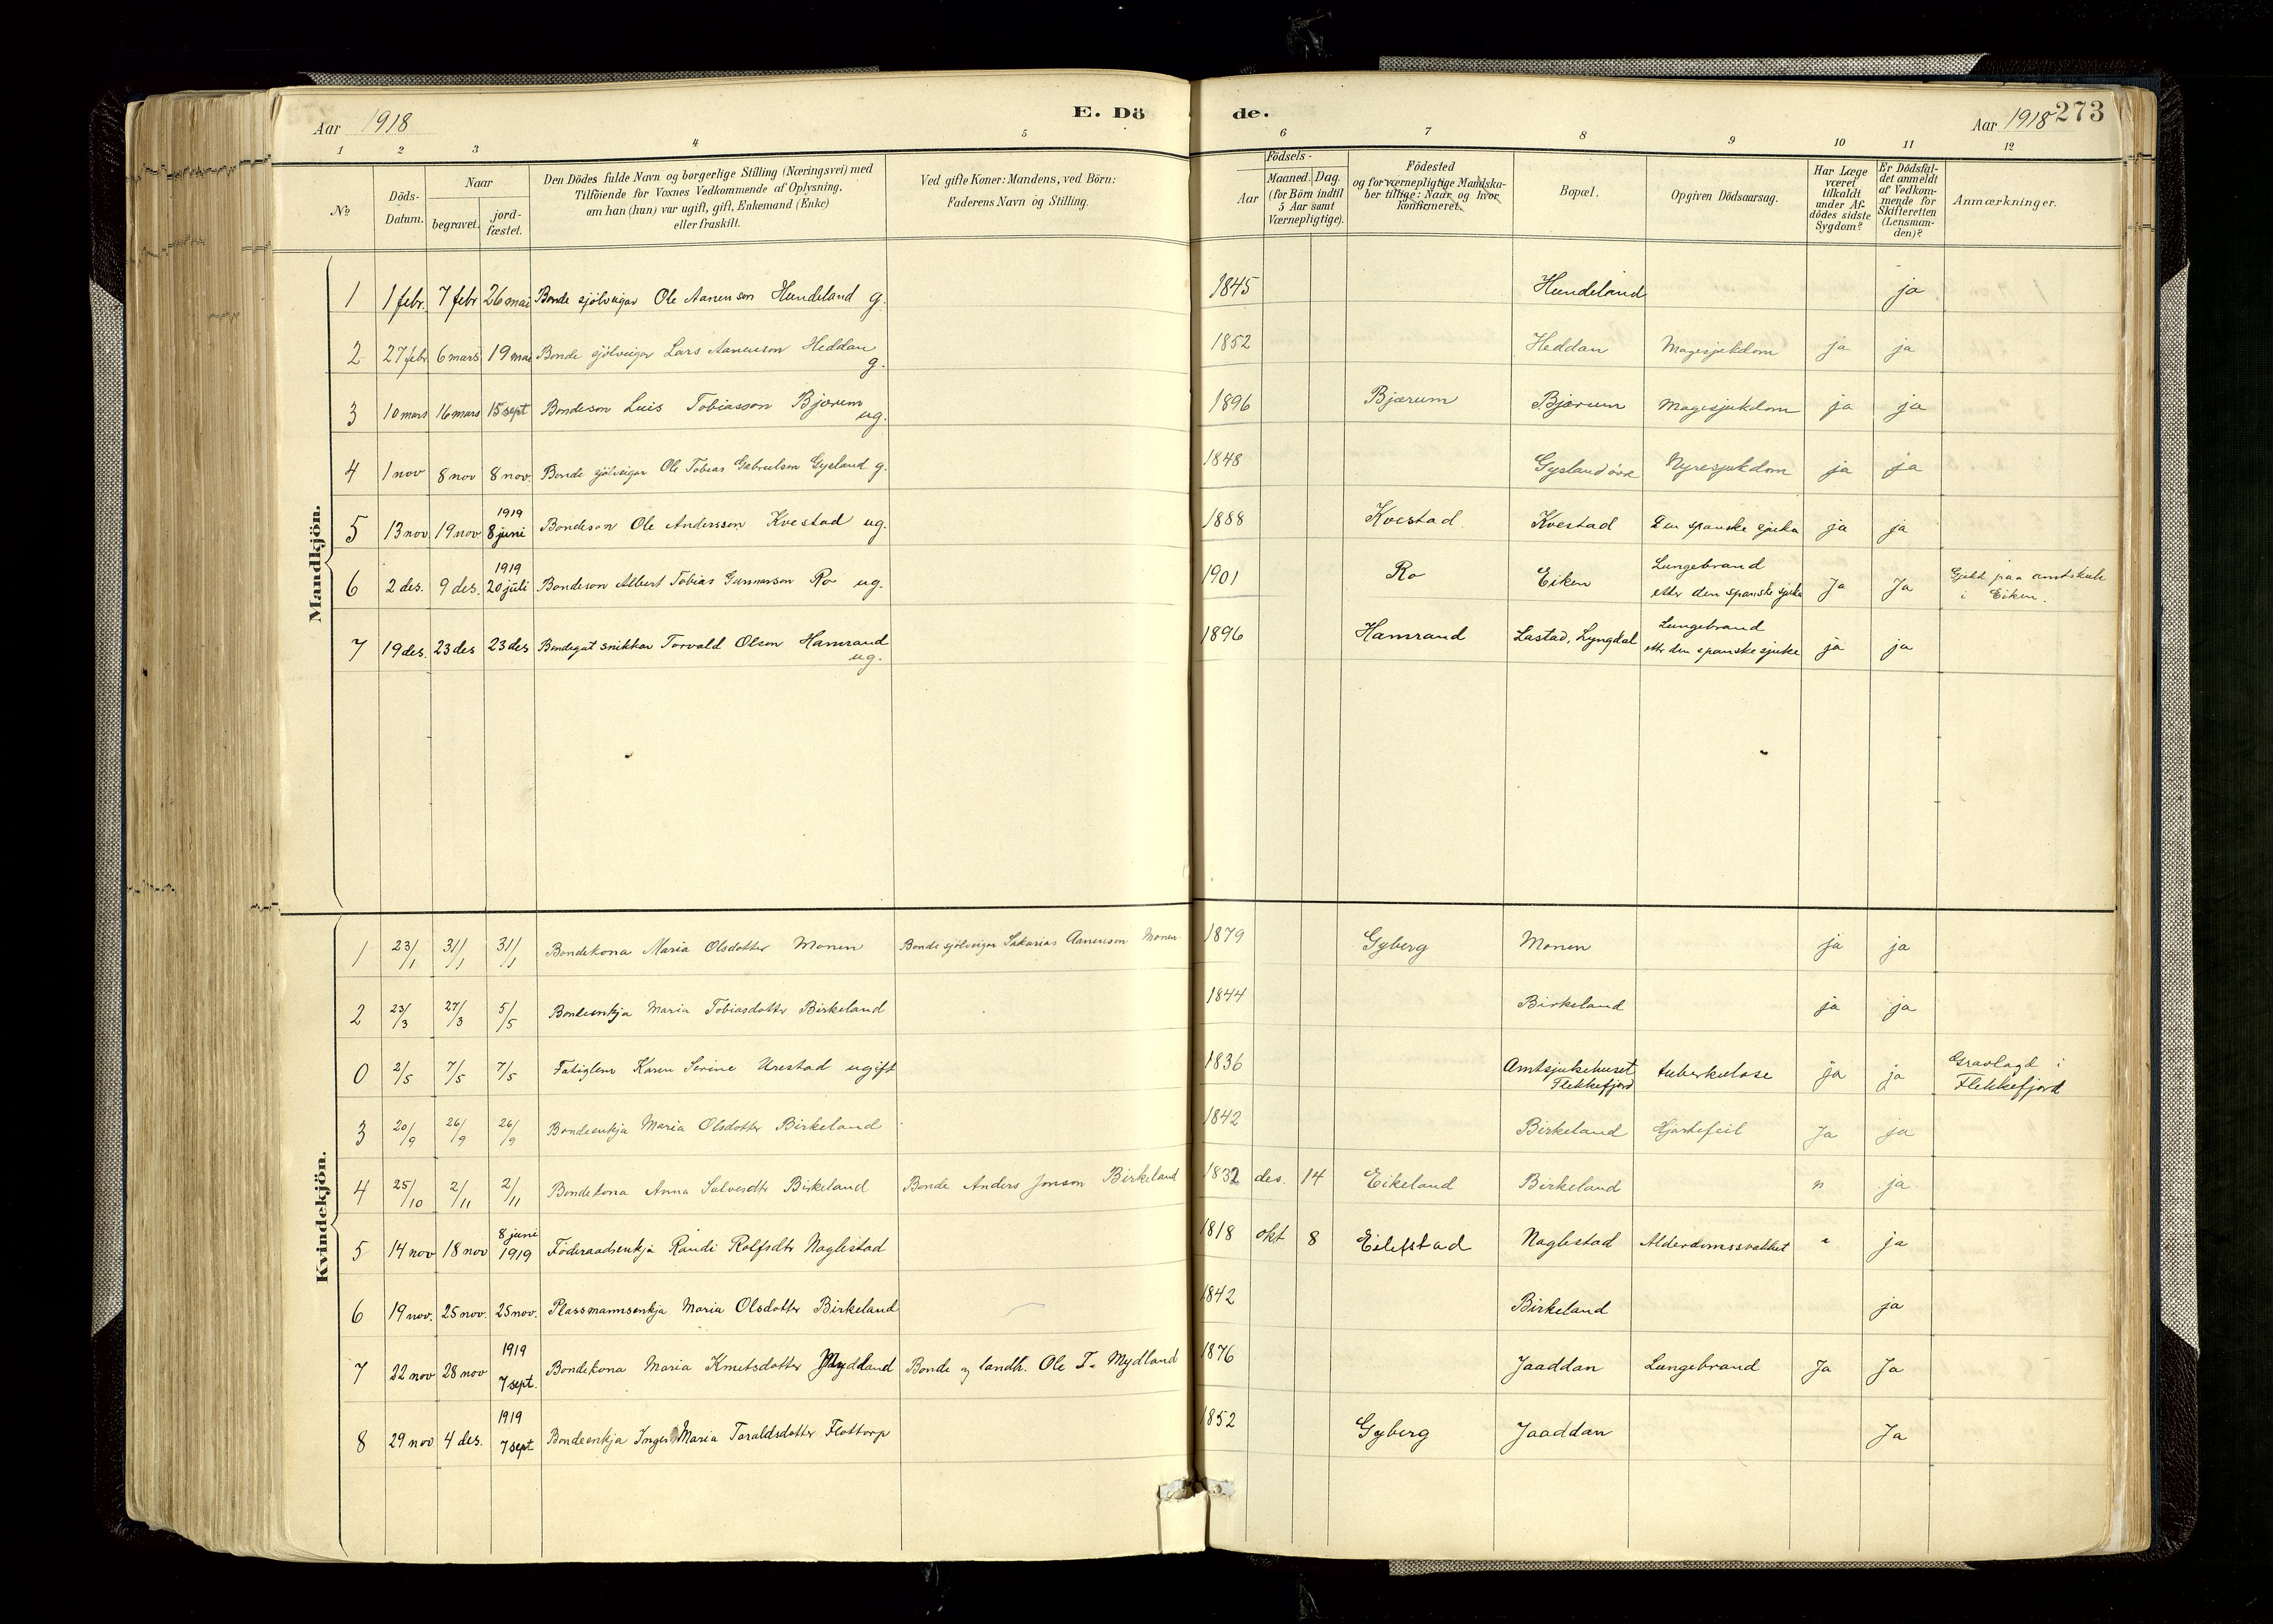 Aar 1918
E. Dö
de.
Aar 1918 273
1 2 3 4 5 6 7 8 9 10 11 12
No
Döds-
Datum.
Naar
begravet.
jord-
fæstet.
Den Dödes fulde Navn og borgerlige Stilling (Næringsvei) med
Tilföiende for Voxnes Vedkommende af Oplysning,
om han (hun) var ugift, gift, Enkemand (Enke)
eller fraskilt.
Ved gifte Koner: Mandens, ved Börn:
Faderens Navn og Stilling.
Födsels-
Aar
Maaned. Dag.
(for Börn indtil
5 Aar samt
Værnepligtige).
Födested
og for værnepligtige Mandska-
ber tillige: Naar og hvor
konfirmeret.
Bopæl.
Opgiven Dödsaarsag.
Har Læge
været
tilkaldt
under Af-
dödes sidste
Sygdom?
Er Dödsfal-
det anmeldt
af Vedkom-
mende for
Skifteretten
(Lensman-
den)?
Anmærkninger.
Mandkjön.
1 1 febr. 7 febr 26 mai Bonde sjölveigar Ole Aanenson Hundeland g. 1845 Hundeland ja
2 27 febr 6 mars 19 mai Bonde sjölveigar Lars Aanenson Heddan 1852 Heddan Magesjukdom ja ja
g.
3 10 mars 16 mars 15 sept Bondeson Luis Tobiasson Bjærum 1896 Bjærum Bjærum Magesjukdom ja ja
ug.
4 1 nov 8 nov 8 nov. Bonde sjölveigar Ole Tobias Gabrielson Gysland g. 1848 Gysland övre Nyresjukdom ja ja
1919
5 13 nov. 19 nov. 8 juni Bondeson Ole Andersson Kvestad ug. 1888 Kvestad. Kvestad Den spanske sjuka ja ja
1919
6 2 des. 9 des. 20 juli Bondeson Albert Tobias Gunnarson Ro ug. 1901 Ro Eiken Lungebrand
etter den spanske sjuka Ja Ja Gjekk paa amtskule
i Eiken.
7 19 des. 23 des 23 des Bondegut snikkar Torvald Olson Hamrand 1896 Hamrand Lastad, Lyngdal Lungebrand
ug. ettr den spanske sjuke ja ja
Kvindekjön.
1 23/1 31/1 31/1 Bondekona Maria Olsdotter Monen Bonde sjölveigar Sakarias Aanenson Monen 1879 Gyberg Monen ja ja
2 23/3 27/3 5/5 Bondeenkja Maria Tobiasdotter Birkeland 1844 Birkeland ja ja
0 2/5 7/5 7/5 Fatiglem Karen Serine Urestad ugift 1836 Amtsjukehuset
Flekkefjord tuberkulose ja ja Gravlagd i
Flekkefjord
3 20/9 26/9 26/9 Bondeenkja Maria Olsdotter Birkeland 1842 Birkeland Hjartefeil Ja ja
4 25/10 2/11 2/11 Bondekona Anna Salvesdtr Birkeland Bonde Anders Jonson Birkeland 1832 des. 14 Eikeland Birkeland n ja
8 juni
5 14 nov 18 nov 1919 Föderaadsenkja Randi Rolfsdtr Naglestad 1818 okt 8 Eilefstad Naglestad Alderdomssvakhet ja
6 19 nov. 25 nov. 25 nov. Plassmannsenkja Maria Olsdotter Birkeland 1842 Birkeland ja
1919
7 22 nov 28 nov 7 sept. Bondekona Maria Knutsdotter Mydland Bonde og landh. Ole T. Mydland 1876 Jaaddan Lungebrand Ja Ja
1919
8 29 nov 4 des. 7 sept Bondeenkja Inger Maria Taraldsdotter Flottorp 1852 Gyberg Jaaddan Ja